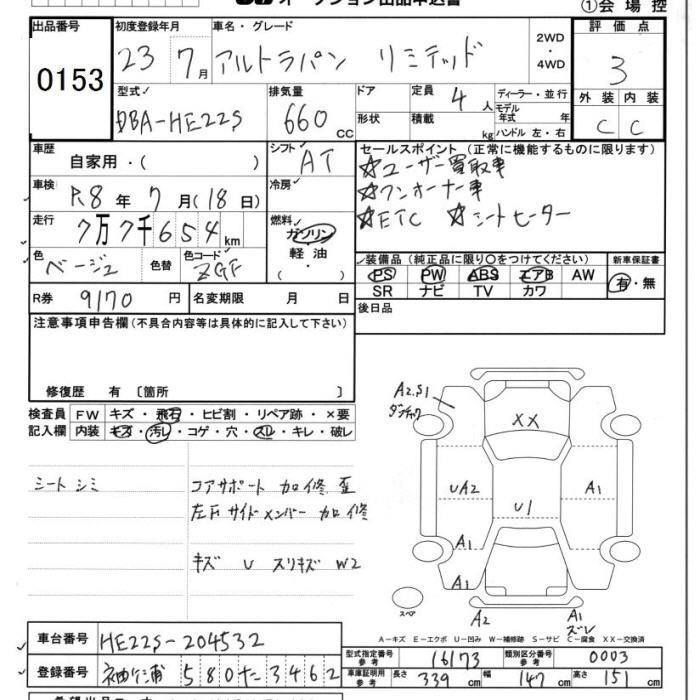 ①会場控
出品番号
0153
初度登録年月
23 7月
車名・グレード
アルトラパン リミテッド
2WD
・
4WD
評価点
3
型式
DBA-HE22S
排気量
660 CC
ドア
形状
定員 4 人
積載 kg
ディーラー・並行
モデル
年式 年
ハンドル 左・右
外装 内装
C C
車歴
自家用・( )
シフト
AT
セールスポイント (正常に機能するものに限ります)
☆ユーザー買取車
☆ワンオーナー車
☆ETC ☆シートヒーター
車検
R.8年7月(18日)
冷房
走行
7万7千654km
燃料
ガソリン
軽油
・
( )
色
ベージュ
色替
色コード
ZGF
装備品 (純正品に限り○をつけてください)
新車保証書
PS PW ABS エアB AW
SR ナビ TV カワ
有・無
R券 9170円
名変期限 月 日
後日品
注意事項申告欄(不具合内容等は具体的に記入して下さい)
修復歴 有 〔箇所 〕
検査員
記入欄
FW キズ・飛石・ヒビ割・リペア跡・×要
内装 キズ・汚レ・コゲ・穴・スレ・キレ・破レ
シート シミ
コアサポート 加修 歪
左F サイドメンバー 加修
キズ U スリキズ W2
A2.S1
XX
UA2
U1
A1
A1
A1
スペア
A2
A1
ズレ
A-キズ E-エクボ U-凹み W-補修跡 S-サビ C-腐食 XX-交換済
車台番号 HE22S-204532
登録番号 袖ヶ浦 580 た 3462
型式指定番号
参考
16173
類別区分番号
参考
0003
車庫証明用
参考
長さ 339 cm 幅 147 cm 高さ 151 cm